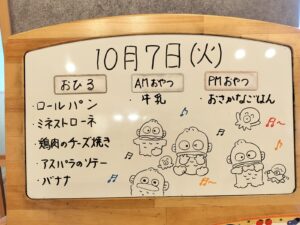 10月7日(火)
おひる
・ロールパン
・ミネストローネ
・鶏肉のチーズ焼き
・アスパラのソテー
・バナナ
AMおやつ
・牛乳
PMおやつ
・おさかなごはん